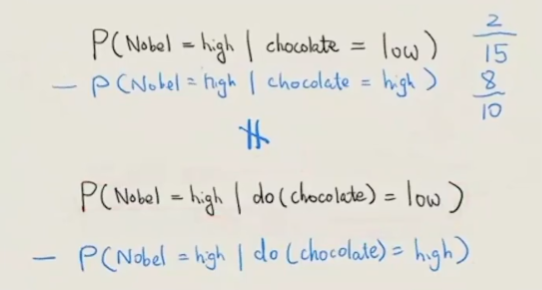 P(Nobel = high | chocolate = low) 2/15
— P(Nobel = high | chocolate = high) 8/10
≠
P(Nobel = high | do(chocolate) = low)
— P(Nobel = high | do(chocolate) = high)